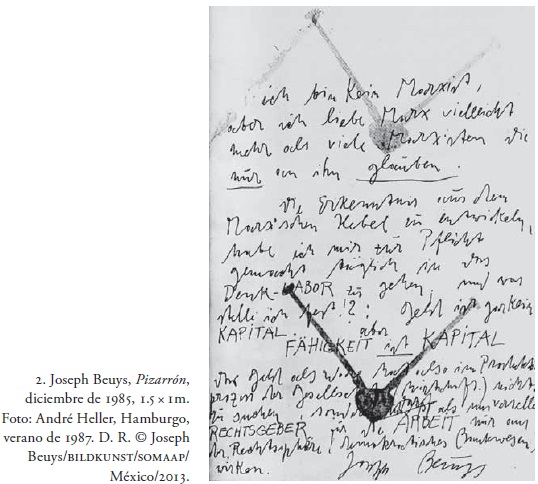 ich bin kein Marxist,
aber ich liebe Marx vielleicht
mehr als viele Marxisten die
nur an ihn glauben.
Die Erkenntnis aus dem
Marx'schen Hebel zu entwickeln,
habe ich mir zur Pflicht
gemacht täglich in das
Denk-LABOR zu gehen, und was
stelle ich fest!?: Geld ist gar kein
KAPITAL. aber
FÄHIGKEIT ist KAPITAL
Das Geld als hat also im
der nichts
zu suchen
RECHTSGEBER für die ARBEIT nur aus
der Rechtssphäre
wirken. Joseph Beuys
2. Joseph Beuys, Pizarrón,
diciembre de 1985, 1.5 × 1 m.
Foto: André Heller, Hamburgo,
verano de 1987. D. R. © Joseph
Beuys/BILDKUNST/SOMAAP/
México/2013.